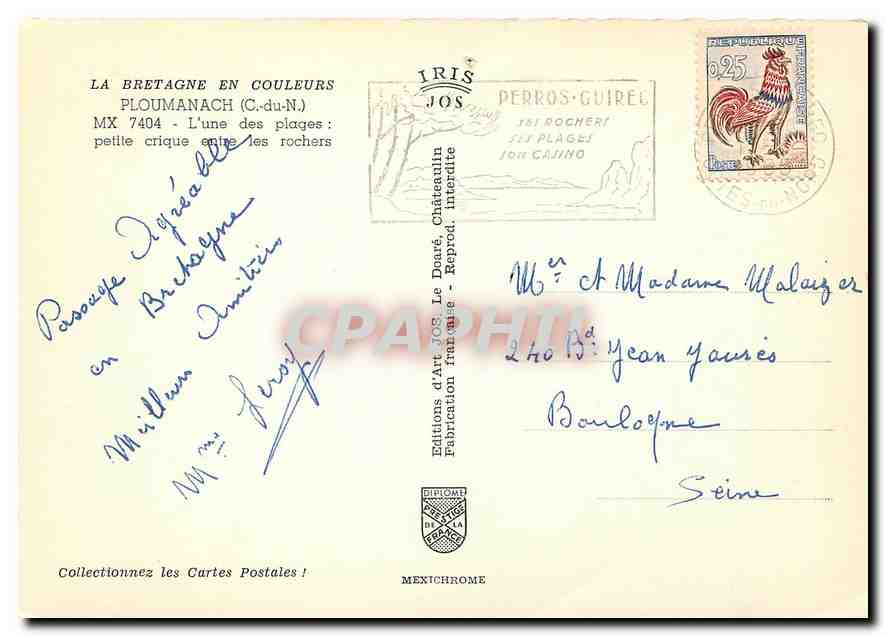 LA BRETAGNE EN COULEURS
PLOUMANACH (C.-du-N.)
MX 7404 - L'une des plages :
petite crique entre les rochers
Passage Agréable
en Bretagne
Meilleurs Amitiés
Mme Leroy
Collectionnez les Cartes Postales !
IRIS
JOS
Editions d'Art JOS. Le Doaré, Châteaulin
Fabrication française - Reprod. interdite
DIPLOME
PRESTIGE
DE LA
FRANCE
MEXICHROME
PERROS-GUIREC
SES ROCHERS
SES PLAGES
SON CASINO
REPUBLIQUE
FRANÇAISE
0,25
Postes
TES-DU-NORD
CPAPHIL
Mer et Madame Malaizer
240 Bd. Jean Jaurès
Boulogne
Seine